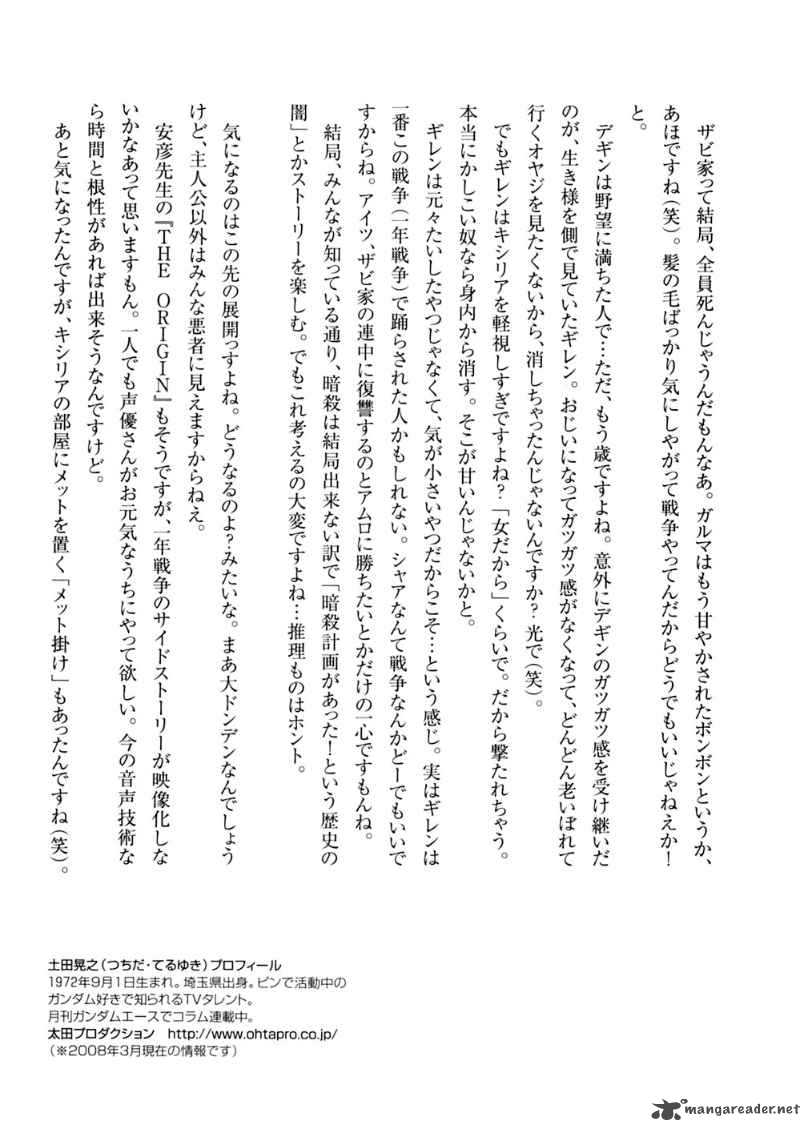 ザビ家って結局、全員死んじゃうんだもんなあ。ガルマはもう甘やかされたボンボンというか、
あほですね(笑)。髪の毛ばっかり気にしやがって戦争やってんだからどうでもいいじゃねえか!
と。
デギンは野望に満ちた人で…ただ、もう歳ですよね。意外にデギンのガツガツ感を受け継いだ
のが、生き様を側で見ていたギレン。おじいになってガツガツ感がなくなって、どんどん老いぼれて
行くオヤジを見たくないから、消しちゃったんじゃないんですか?光で(笑)。
でもギレンはキシリアを軽視しすぎですよね?「女だから」くらいで。だから撃たれちゃう。
本当にかしこい奴なら身内から消す。そこが甘いんじゃないかと。
ギレンは元々たいしたやつじゃなくて、気が小さいやつだからこそ…という感じ。実はギレンは
一番この戦争(一年戦争)で踊らされた人かもしれない。シャアなんて戦争なんかどーでもいいで
すからね。アイツ、ザビ家の連中に復讐するのとアムロに勝ちたいとかだけの一心ですもんね。
結局、みんなが知っている通り、暗殺は結局出来ない訳で「暗殺計画があった!という歴史の
闇」とかストーリーを楽しむ。でもこれ考えるの大変ですよね…推理ものはホント。
気になるのはこの先の展開っすよね。どうなるのよ?みたいな。まあ大ドンデンなんでしょう
けど、主人公以外はみんな悪者に見えますからねえ。
安彦先生の『THE ORIGIN』もそうですが、一年戦争のサイドストーリーが映像化しな
いかなあって思いますもん。一人でも声優さんがお元気なうちにやって欲しい。今の音声技術な
ら時間と根性があれば出来そうなんですけど。
あと気になったんですが、キシリアの部屋にメットを置く「メット掛け」もあったんですね(笑)。
土田晃之(つちだ・てるゆき)プロフィール
1972年9月1日生まれ。埼玉県出身。ピンで活動中の
ガンダム好きで知られるTVタレント。
月刊ガンダムエースでコラム連載中。
太田プロダクション http://www.ohtapro.co.jp/
(※2008年3月現在の情報です)
mangareader.net